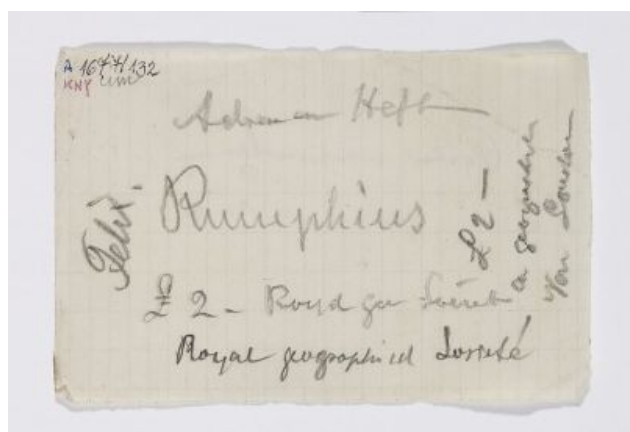 A 1677/132
KNY
Adressen Heft
Felix.
Rumphius
£ 2 —
£ 2 - Royal geo Sociét
Royal geographical Societé
Von London